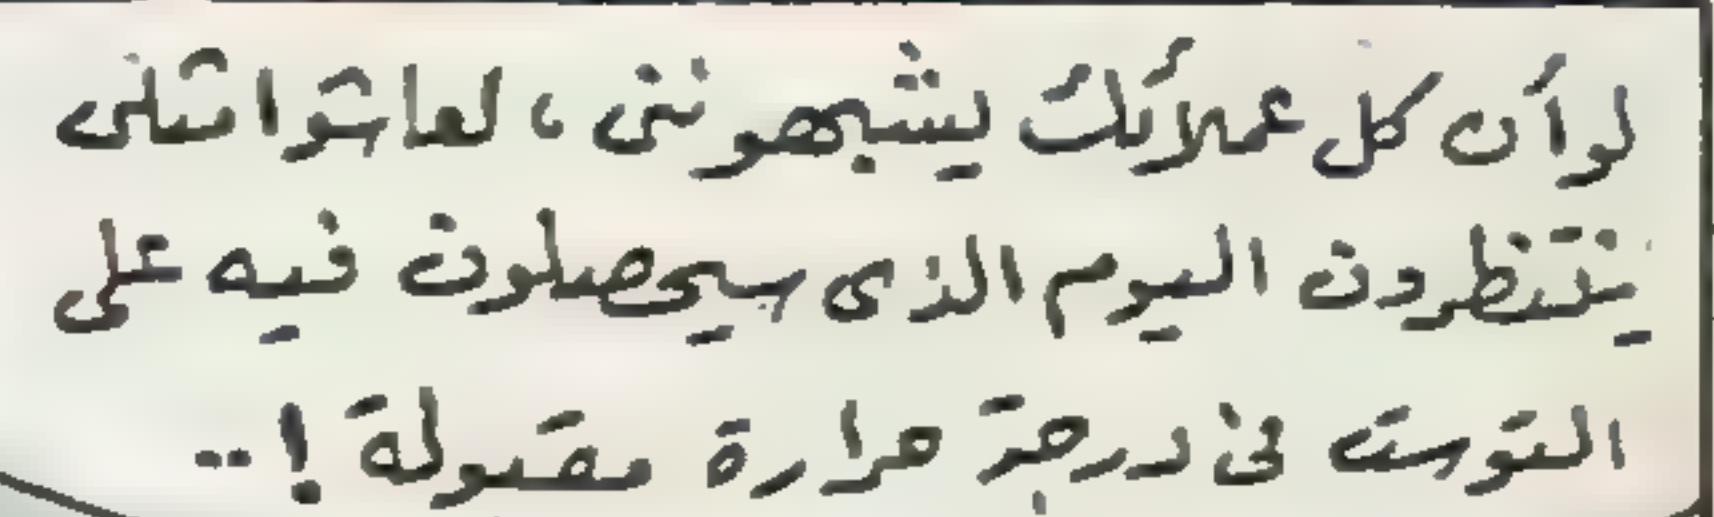 لو أن كل عملائك يشبهوننى ، لعاشوا مثلى
ينتظرون اليوم الذى سيحصلون فيه على
التوست فى درجة حرارة مقبولة !..